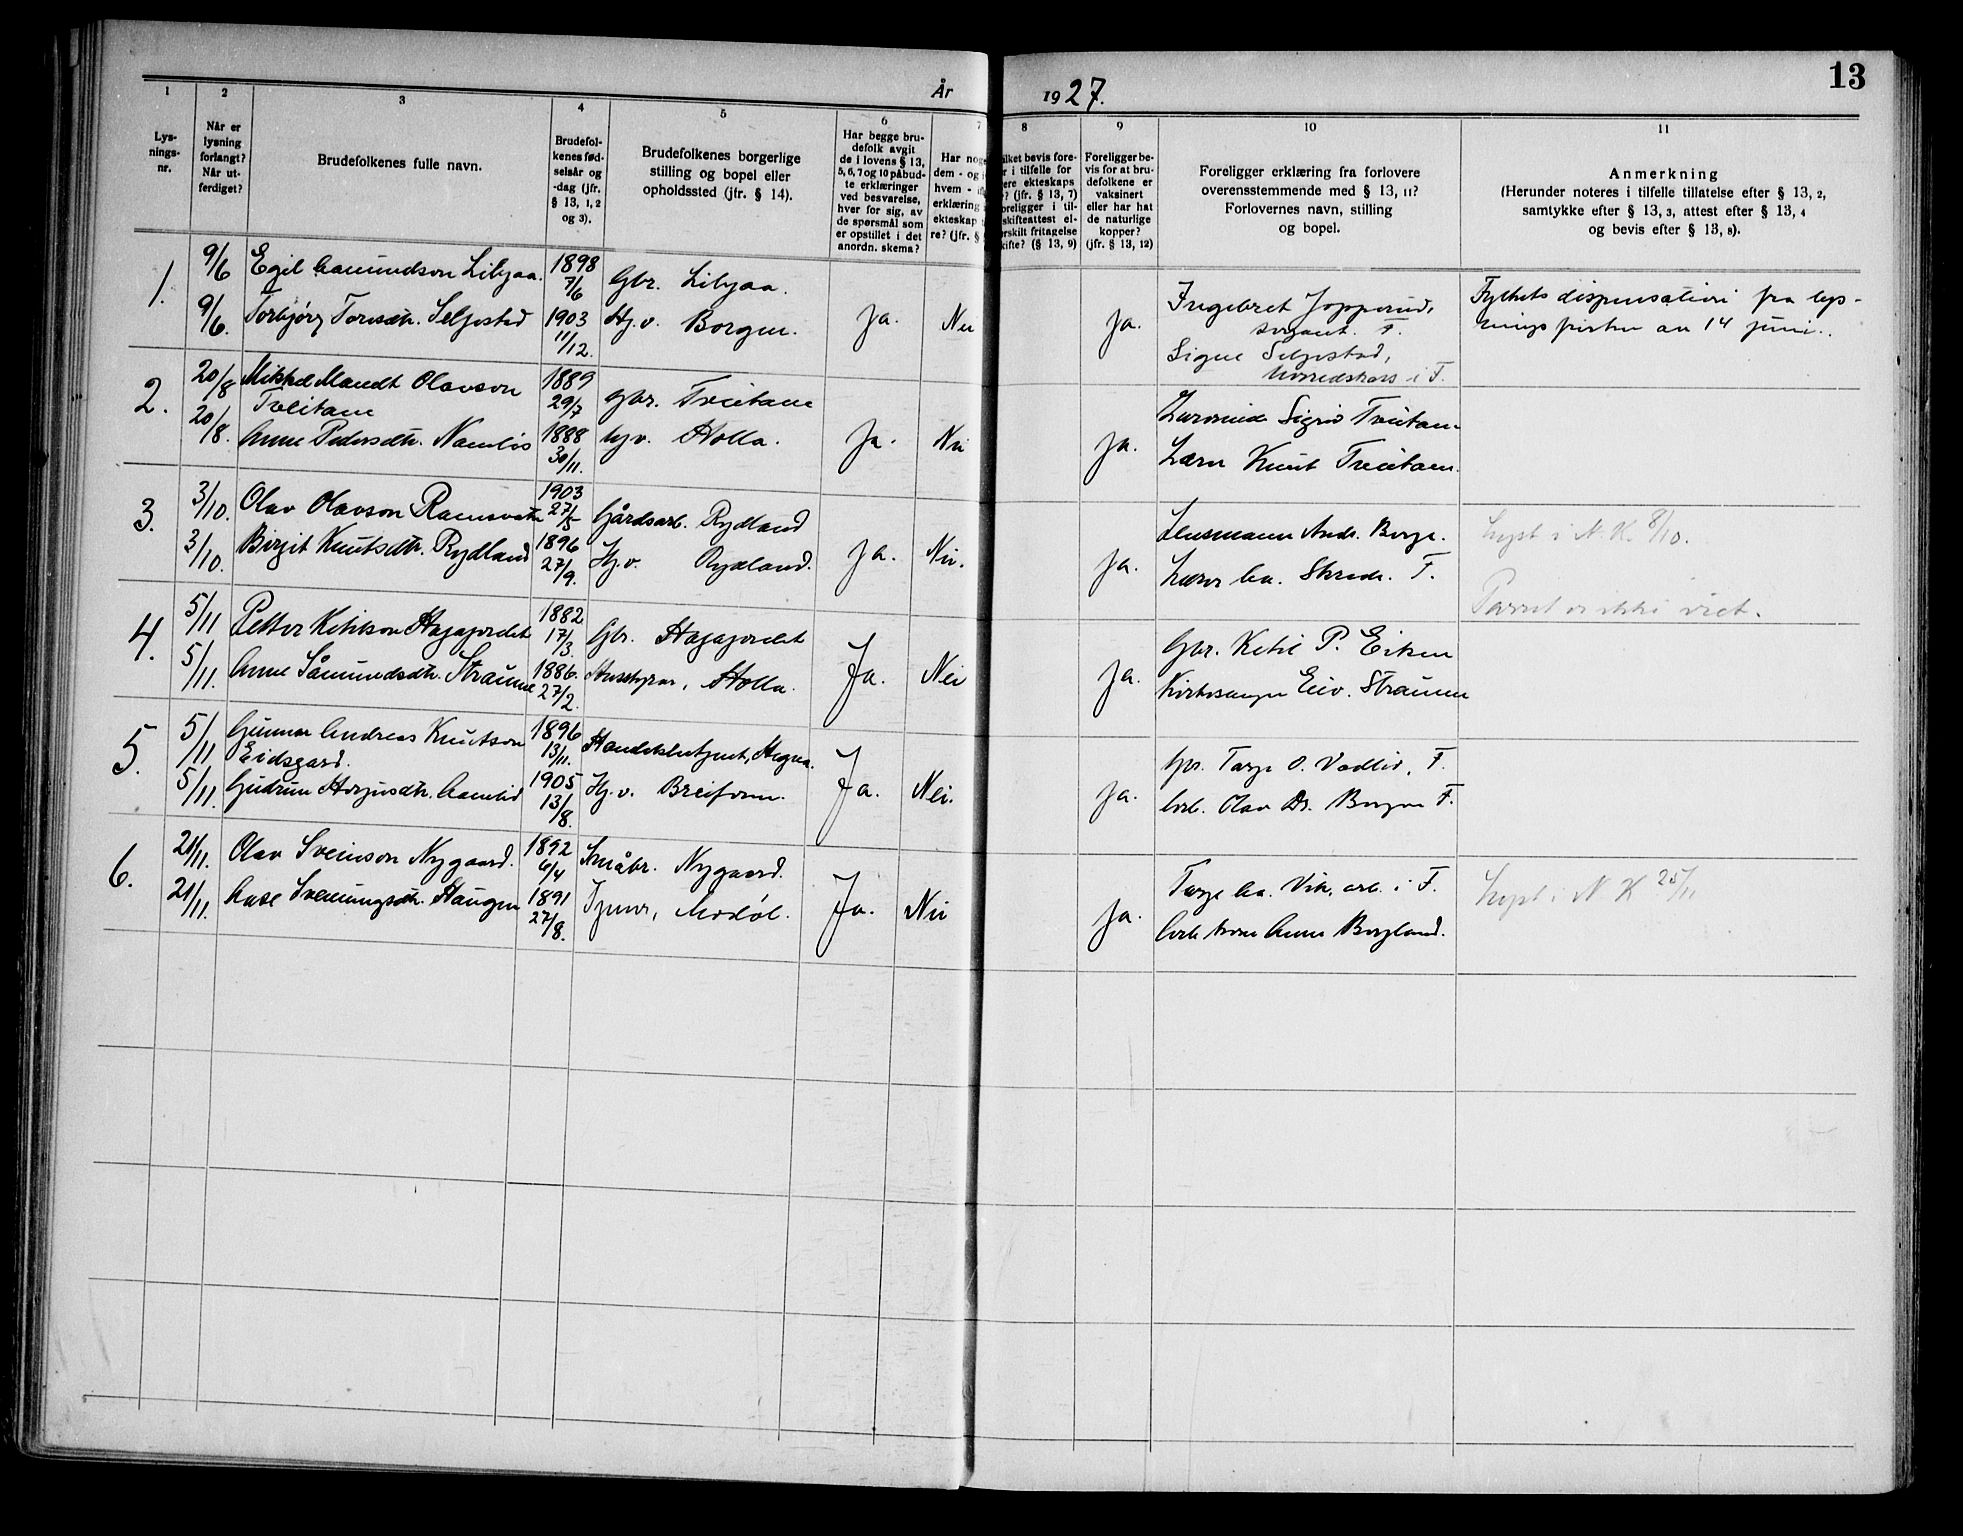 År 1927.
13
1 2 3 4 5 6 7 8 9 10 11
Lys-
nings-
nr.
Når er
lysning
forlangt?
Når ut-
ferdiget?
Brudefolkenes fulle navn.
Brudefol-
kenes fød-
selsår og
-dag (jfr.
§ 13, 1, 2
og 3).
Brudefolkenes borgerlige
stilling og bopel eller
opholdssted (jfr. § 14).
Har begge bru-
defolk avgit
de i lovens § 13,
5, 6, 7 og 10 påbud-
te erklæringer
ved besvarelse,
hver for sig, av
de spørsmål som
er opstillet i det
anordn. skema?
Har
dem - og
hvem -
erklæring
ekteskap
re? (jfr. §
bevis fore-
i tilfelle for
ekteskaps
? (jfr. § 13, 7)
i til-
skifteattest el-
fritagelse
(§ 13, 9)
Foreligger be-
vis for at bru-
defolkene er
vaksinert
eller har hat
de naturlige
kopper?
(jfr. § 13, 12)
Foreligger erklæring fra forlovere
overensstemmende med § 13, 11?
Forlovernes navn, stilling
og bopel.
Anmerkning
(Herunder noteres i tilfelle tillatelse efter § 13, 2,
samtykke efter § 13, 3, attest efter § 13, 4
og bevis efter § 13, 8).
1. 9/6 Egil Aamundson Libjaa. 1898 7/6 Gbr. Libjaa.
9/6. Torbjørg Toresdtr. Seljestad 1903 11/12. Hj.v. Borgen. Ja. Nei Ja.
Ingebret Jopperud,
sersjant. F.
Signe Seljestad,
i F.
Fylkets dispensation fra lys-
ningsfristen av 14 juni.
2. 20/8 Mikkel Mandt Olavson 1889 29/7 Gbr. Tveitane
Tveitane
20/8. Anne Pedersdtr. Namløs 1888 30/11. hjv. Holla. Ja. Nei Ja.
Lærerinde Sigrid Tveitane
Lærer Knut Tveitane.
3. 3/10. Olav Olavson Ramsvatn 1903 27/5 Gårdsarb. Rydland
3/10. Birgit Knutsdtr. Rydland 1896 27/9. Hj.v. Rydland. Ja. Nei. Ja.
Lensmann Andr. Berge.
Lærer Aa. Skredr. F.
Lyst i N. K. 8/10.
Parret er ikke viet.
4. 5/11 Petter Ketilson Hagajordet 1882 17/3. Gbr. Hagajordet
5/11. Anne Såmundsdtr. Straume 1886. 27/2. Husstyrer, Holla. Ja. Nei Ja.
Gbr. Ketil P. Eiken
Kirkesanger Eiv. Straume
5. 5/11 Gunnar Andreas Knutson 1896 13/11. Handelsbetjent, Hegna.
Eidsgard.
5/11. Gudrun Hergusdtr. Aamlid 1905 13/8. Hj.v. Breifonn. Ja. Nei. Ja.
Gbr. Targe O. Vadlid, F.
Arb. Olav Dr. Borgen F.
6. 21/11. Olav Sveinson Nygaard. 1892 6/4 Småbr. Nygaard.
21/11. Aase Sveinungsdtr. Haugen 1891 27/8. Tjener, Modøl. Ja. Nei Ja.
Targe Aa. Vik, arb. i F.
Arb. kone Anne Borgland.
Lyst i N K 25/11